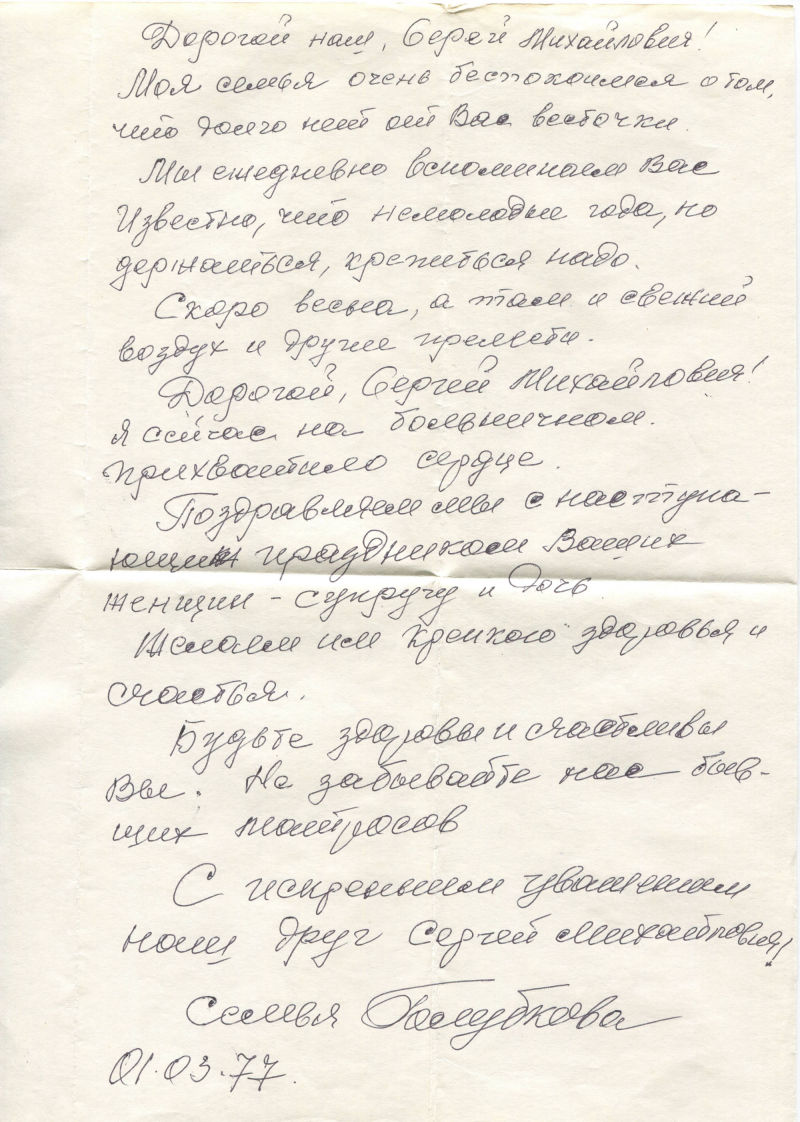 Дорогой наш, Сергей Михайлович!
Моя семья очень беспокоимся о том,
что долго нет от Вас весточки.
Мы ежедневно вспоминаем Вас
Известно, что немолодые года, но
держаться, крепиться надо.
Скоро весна, а там и свежий
воздух и другие прелести.
Дорогой, Сергей Михайлович!
Я сейчас на больничном.
прихватило сердце.
Поздравляем мы с наступа-
ющим праздником Ваших
женщин - супругу и дочь.
Желаем им крепкого здоровья и
счастья.
Будьте здоровы и счастливы
Вы. Не забывайте нас быв-
ших матросов
С искренним уважением
наш друг Сергей Михайлович!
Семья Голубкова
01.03.77.